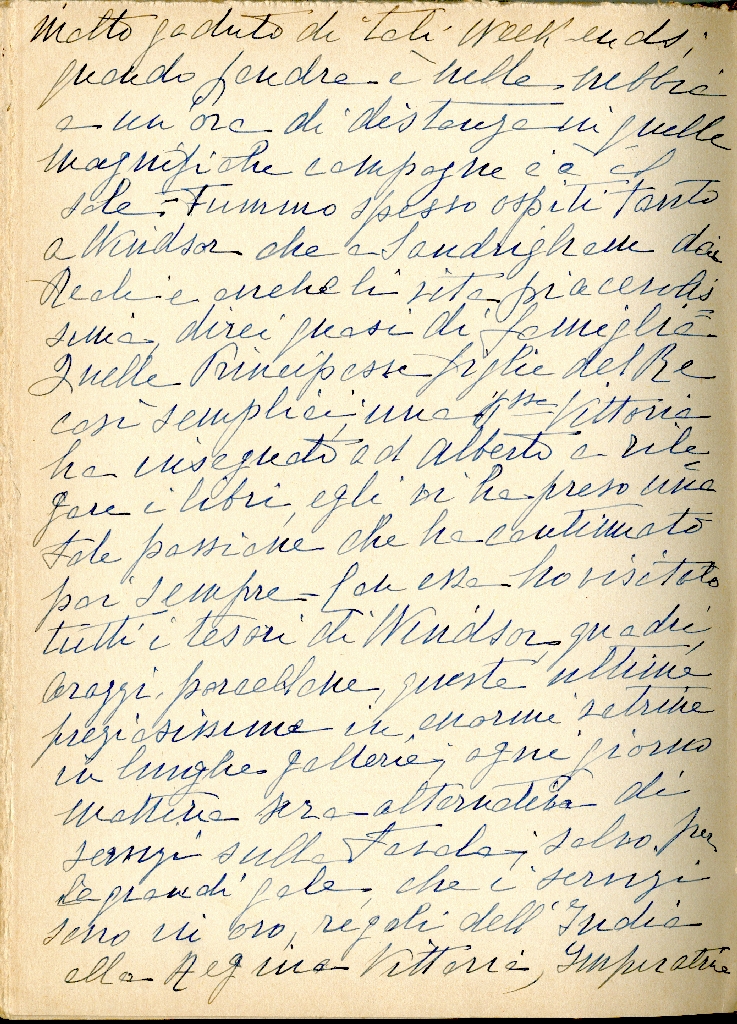 molto goduto di tali Week ends,
quando Londra è nella nebbia
a un'ora di distanza in quelle
magnifiche campagne c'è il
sole. Fummo spesso ospiti tanto
a Windsor che a Sandrigham dai
Reali e anche lì vita piacevolis
sima, direi quasi di famiglia
Quelle Principesse figlie del Re
così semplici, una Pssa Vittoria
ha insegnato ad Alberto a rile
gare i libri, egli vi ha preso una
tale passione che ha continuato
poi sempre - Con essa ho visitato
tutti i tesori di Windsor, quadri,
arazzi, porcellane, queste ultime
preziosissime in enormi vetrine
in lunghe gallerie, ogni giorno
mattina sera alternativa di
servizi sulla tavola, salvo per
le grandi gale, che i servizi
sono in oro, regali dell'India
alla Regina Vittoria, Imperatrice